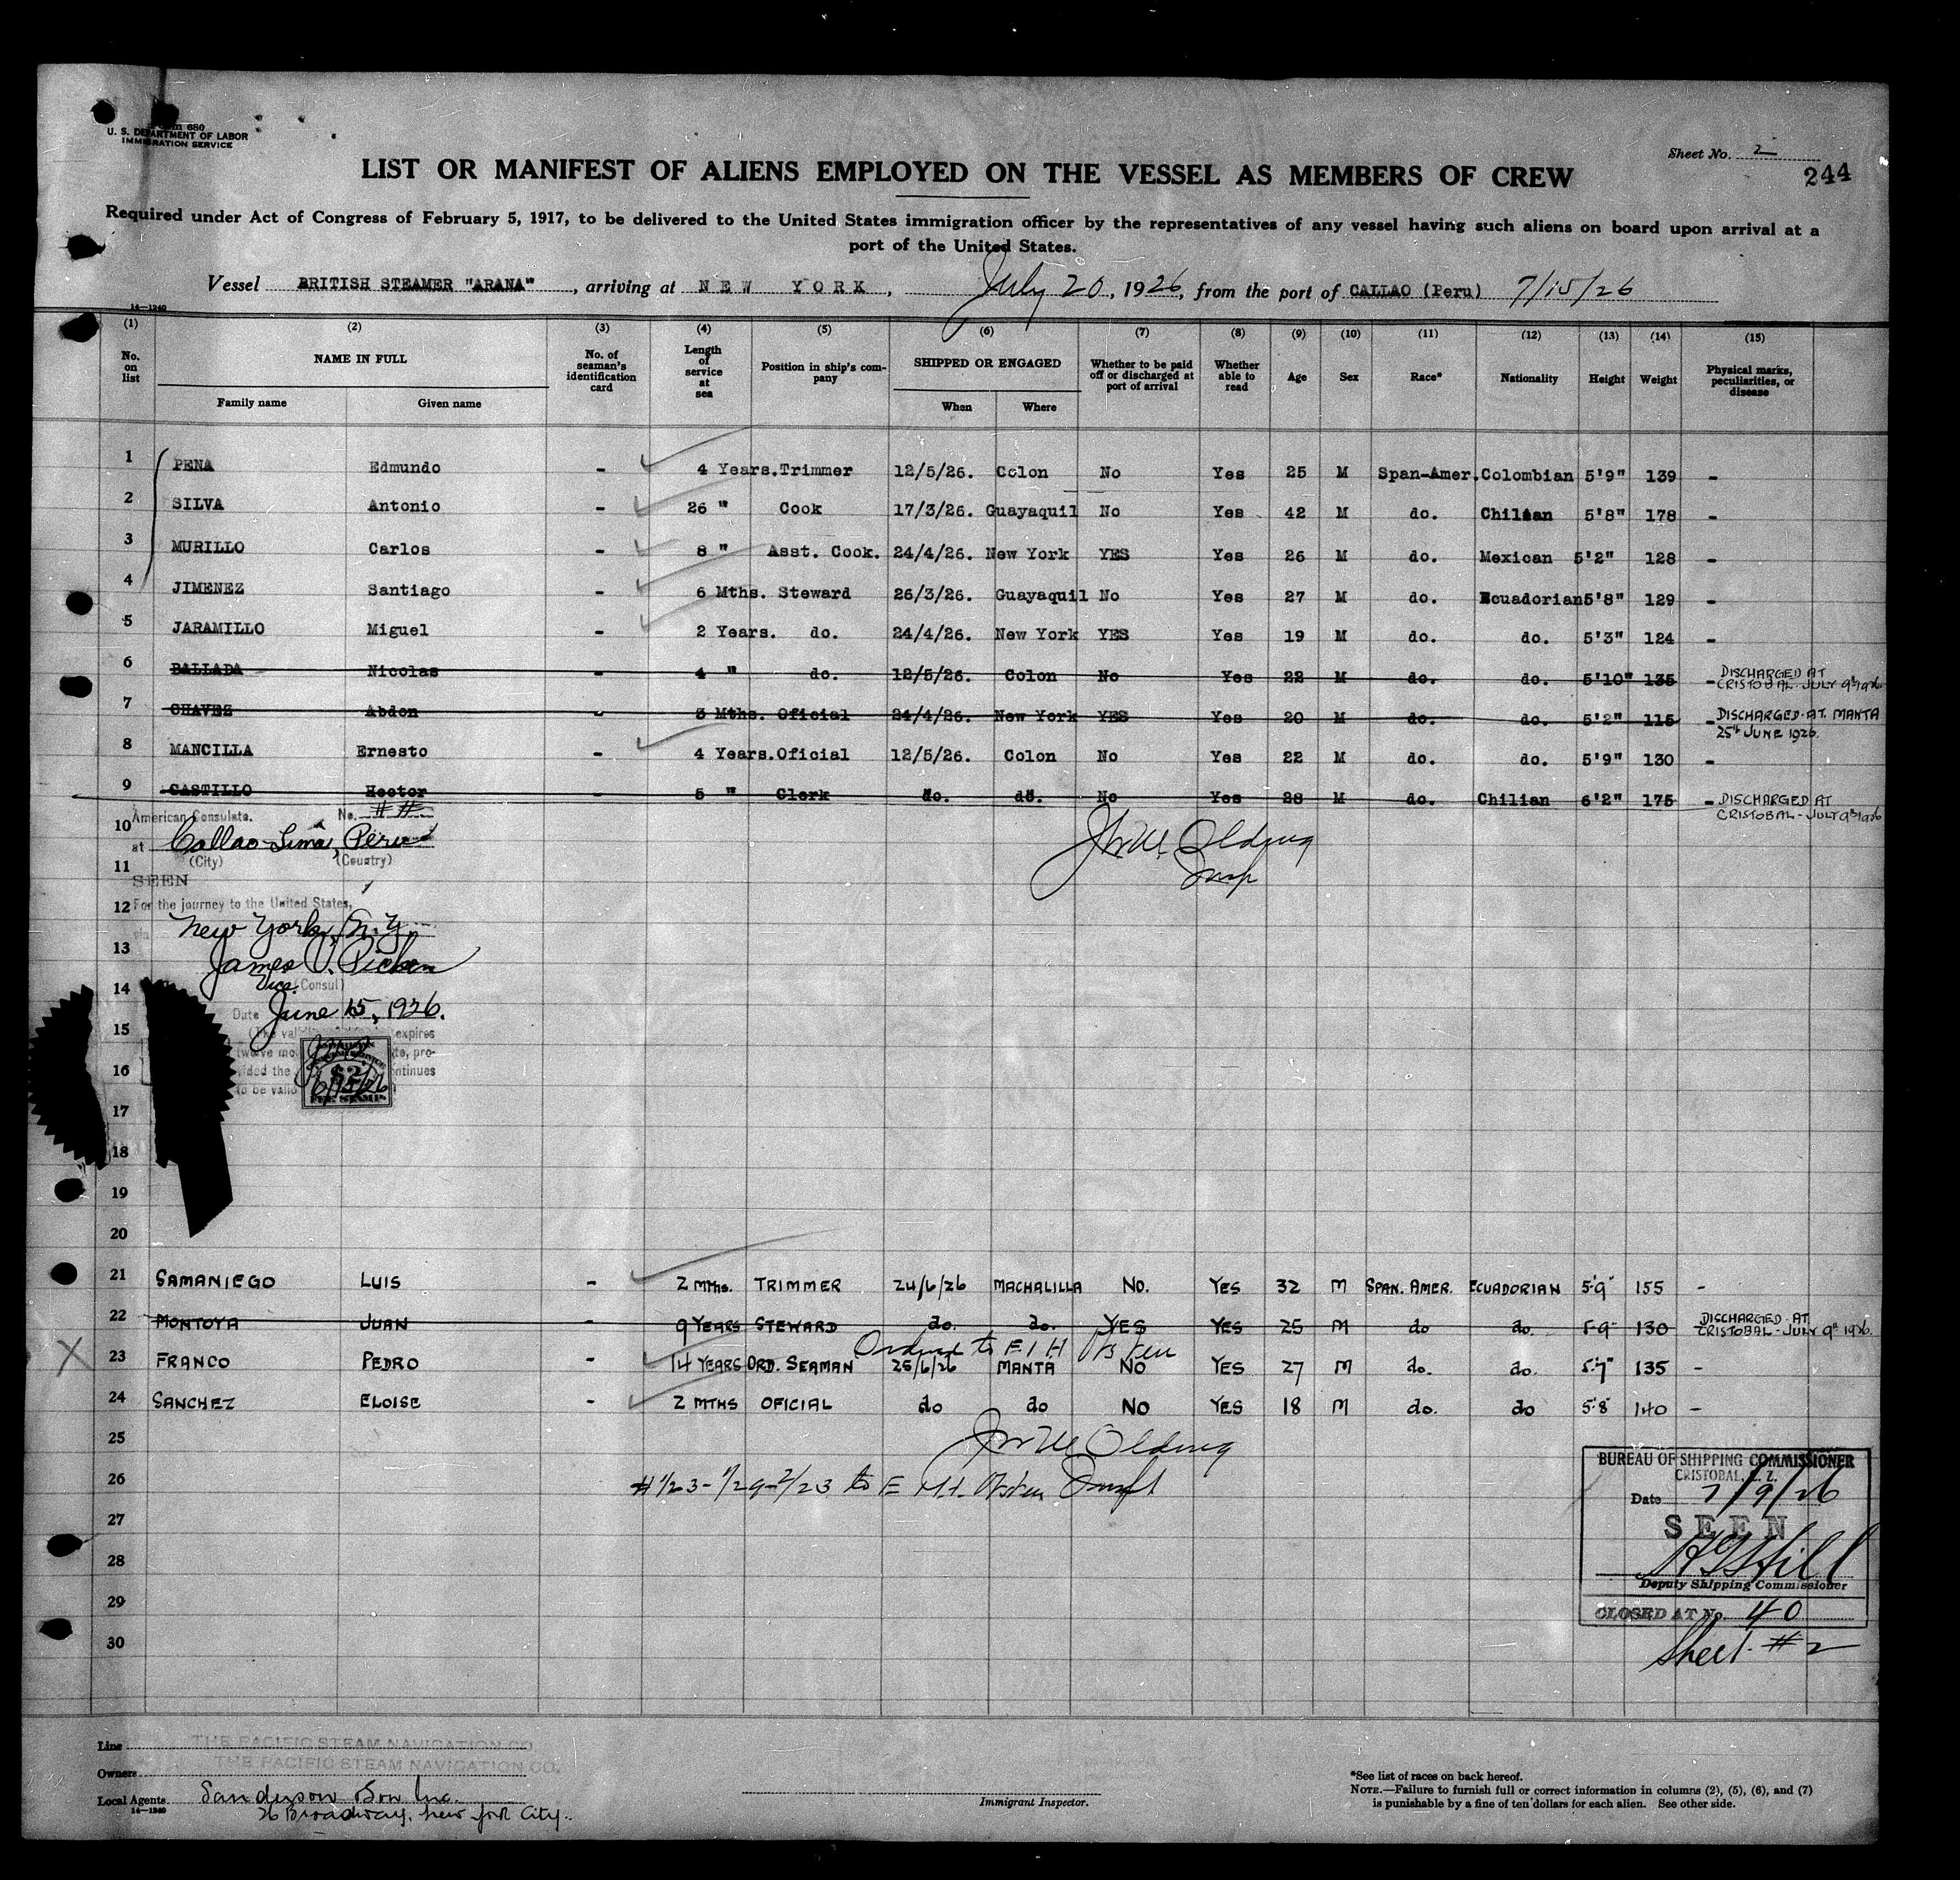 Form 680
U. S. DEPARTMENT OF LABOR
IMMIGRATION SERVICE
Sheet No. 2
244
LIST OR MANIFEST OF ALIENS EMPLOYED ON THE VESSEL AS MEMBERS OF CREW
Required under Act of Congress of February 5, 1917, to be delivered to the United States immigration officer by the representatives of any vessel having such aliens on board upon arrival at a
port of the United States.
Vessel BRITISH STEAMER "ARANA", arriving at NEW YORK, July 20, 1926, from the port of CALLAO (Peru) 7/15/26
14—1240
(1) (2) (3) (4) (5) (6) (7) (8) (9) (10) (11) (12) (13) (14) (15)
No. on list NAME IN FULL Family name Given name No. of seaman's identification card Length of service at sea Position in ship's company SHIPPED OR ENGAGED When Where Whether to be paid off or discharged at port of arrival Whether able to read Age Sex Race* Nationality Height Weight Physical marks, peculiarities, or disease
1 PENA Edmundo - 4 Years. Trimmer 12/5/26. Colon No Yes 25 M Span-Amer. Colombian 5'9" 139 -
2 SILVA Antonio - 26 " Cook 17/3/26. Guayaquil No Yes 42 M do. Chilian 5'8" 178 -
3 MURILLO Carlos - 8 " Asst. Cook. 24/4/26. New York YES Yes 26 M do. Mexican 5'2" 128 -
4 JIMENEZ Santiago - 6 Mths. Steward 26/3/26. Guayaquil No Yes 27 M do. Ecuadorian 5'8" 129 -
5 JARAMILLO Miguel - 2 Years. do. 24/4/26. New York YES Yes 19 M do. do. 5'3" 124 -
6 BALLADA Nicolas - 4 " do. 12/5/26. Colon No Yes 22 M do. do. 5'10" 135 - DISCHARGED AT CRISTOBAL - JULY 9th 1926
7 CHAVEZ Abdon - 3 Mths. Oficial 24/4/26. New York YES Yes 20 M do. do. 5'2" 115 - DISCHARGED AT MANTA 25th JUNE 1926.
8 MANCILLA Ernesto - 4 Years. Oficial 12/5/26. Colon No Yes 22 M do. do. 5'9" 130 -
9 CASTILLO Hector - 5 " Clerk do. do. No Yes 28 M do. Chilian 6'2" 175 - DISCHARGED AT CRISTOBAL - JULY 9th 1926
American Consulate. No. ##
10 at Callao-Lima, Peru
(City) (Country)
11 SEEN
12 For the journey to the United States,
via New York, N.Y.
13 James V. Picken
Vice (Consul)
14 Date June 15, 1926.
15 expires
16 $2
FEE STAMP
17
18
19
20
21 SAMANIEGO LUIS - 2 Mths. TRIMMER 24/6/26 MACHALILLA NO. YES 32 M SPAN. AMER. ECUADORIAN 5'9" 155 -
22 MONTOYA JUAN - 9 YEARS STEWARD do. do. YES YES 25 M do do. 5'9" 130 DISCHARGED AT CRISTOBAL - JULY 9th 1926.
Ordered to E I H
X 23 FRANCO PEDRO - 14 YEARS ORD. SEAMAN 25/6/26 MANTA NO YES 27 M do. do. 5'7" 135 -
24 SANCHEZ ELOISE - 2 MTHS OFICIAL do do NO YES 18 M do. do 5'8 140 -
25
26 #1/23-1/29-2/23 to E
27
28
29
30
BUREAU OF SHIPPING COMMISSIONER
CRISTOBAL, C. Z.
Date 7/9/26
SEEN
Hill
Deputy Shipping Commissioner
CLOSED AT No. 40
Sheet #2
Line THE PACIFIC STEAM NAVIGATION CO
Owners THE PACIFIC STEAM NAVIGATION CO.
Local Agents Sanderson & Son Inc.
14—1240 26 Broadway, New York City.
Immigrant Inspector.
*See list of races on back hereof.
NOTE.—Failure to furnish full or correct information in columns (2), (5), (6), and (7)
is punishable by a fine of ten dollars for each alien. See other side.